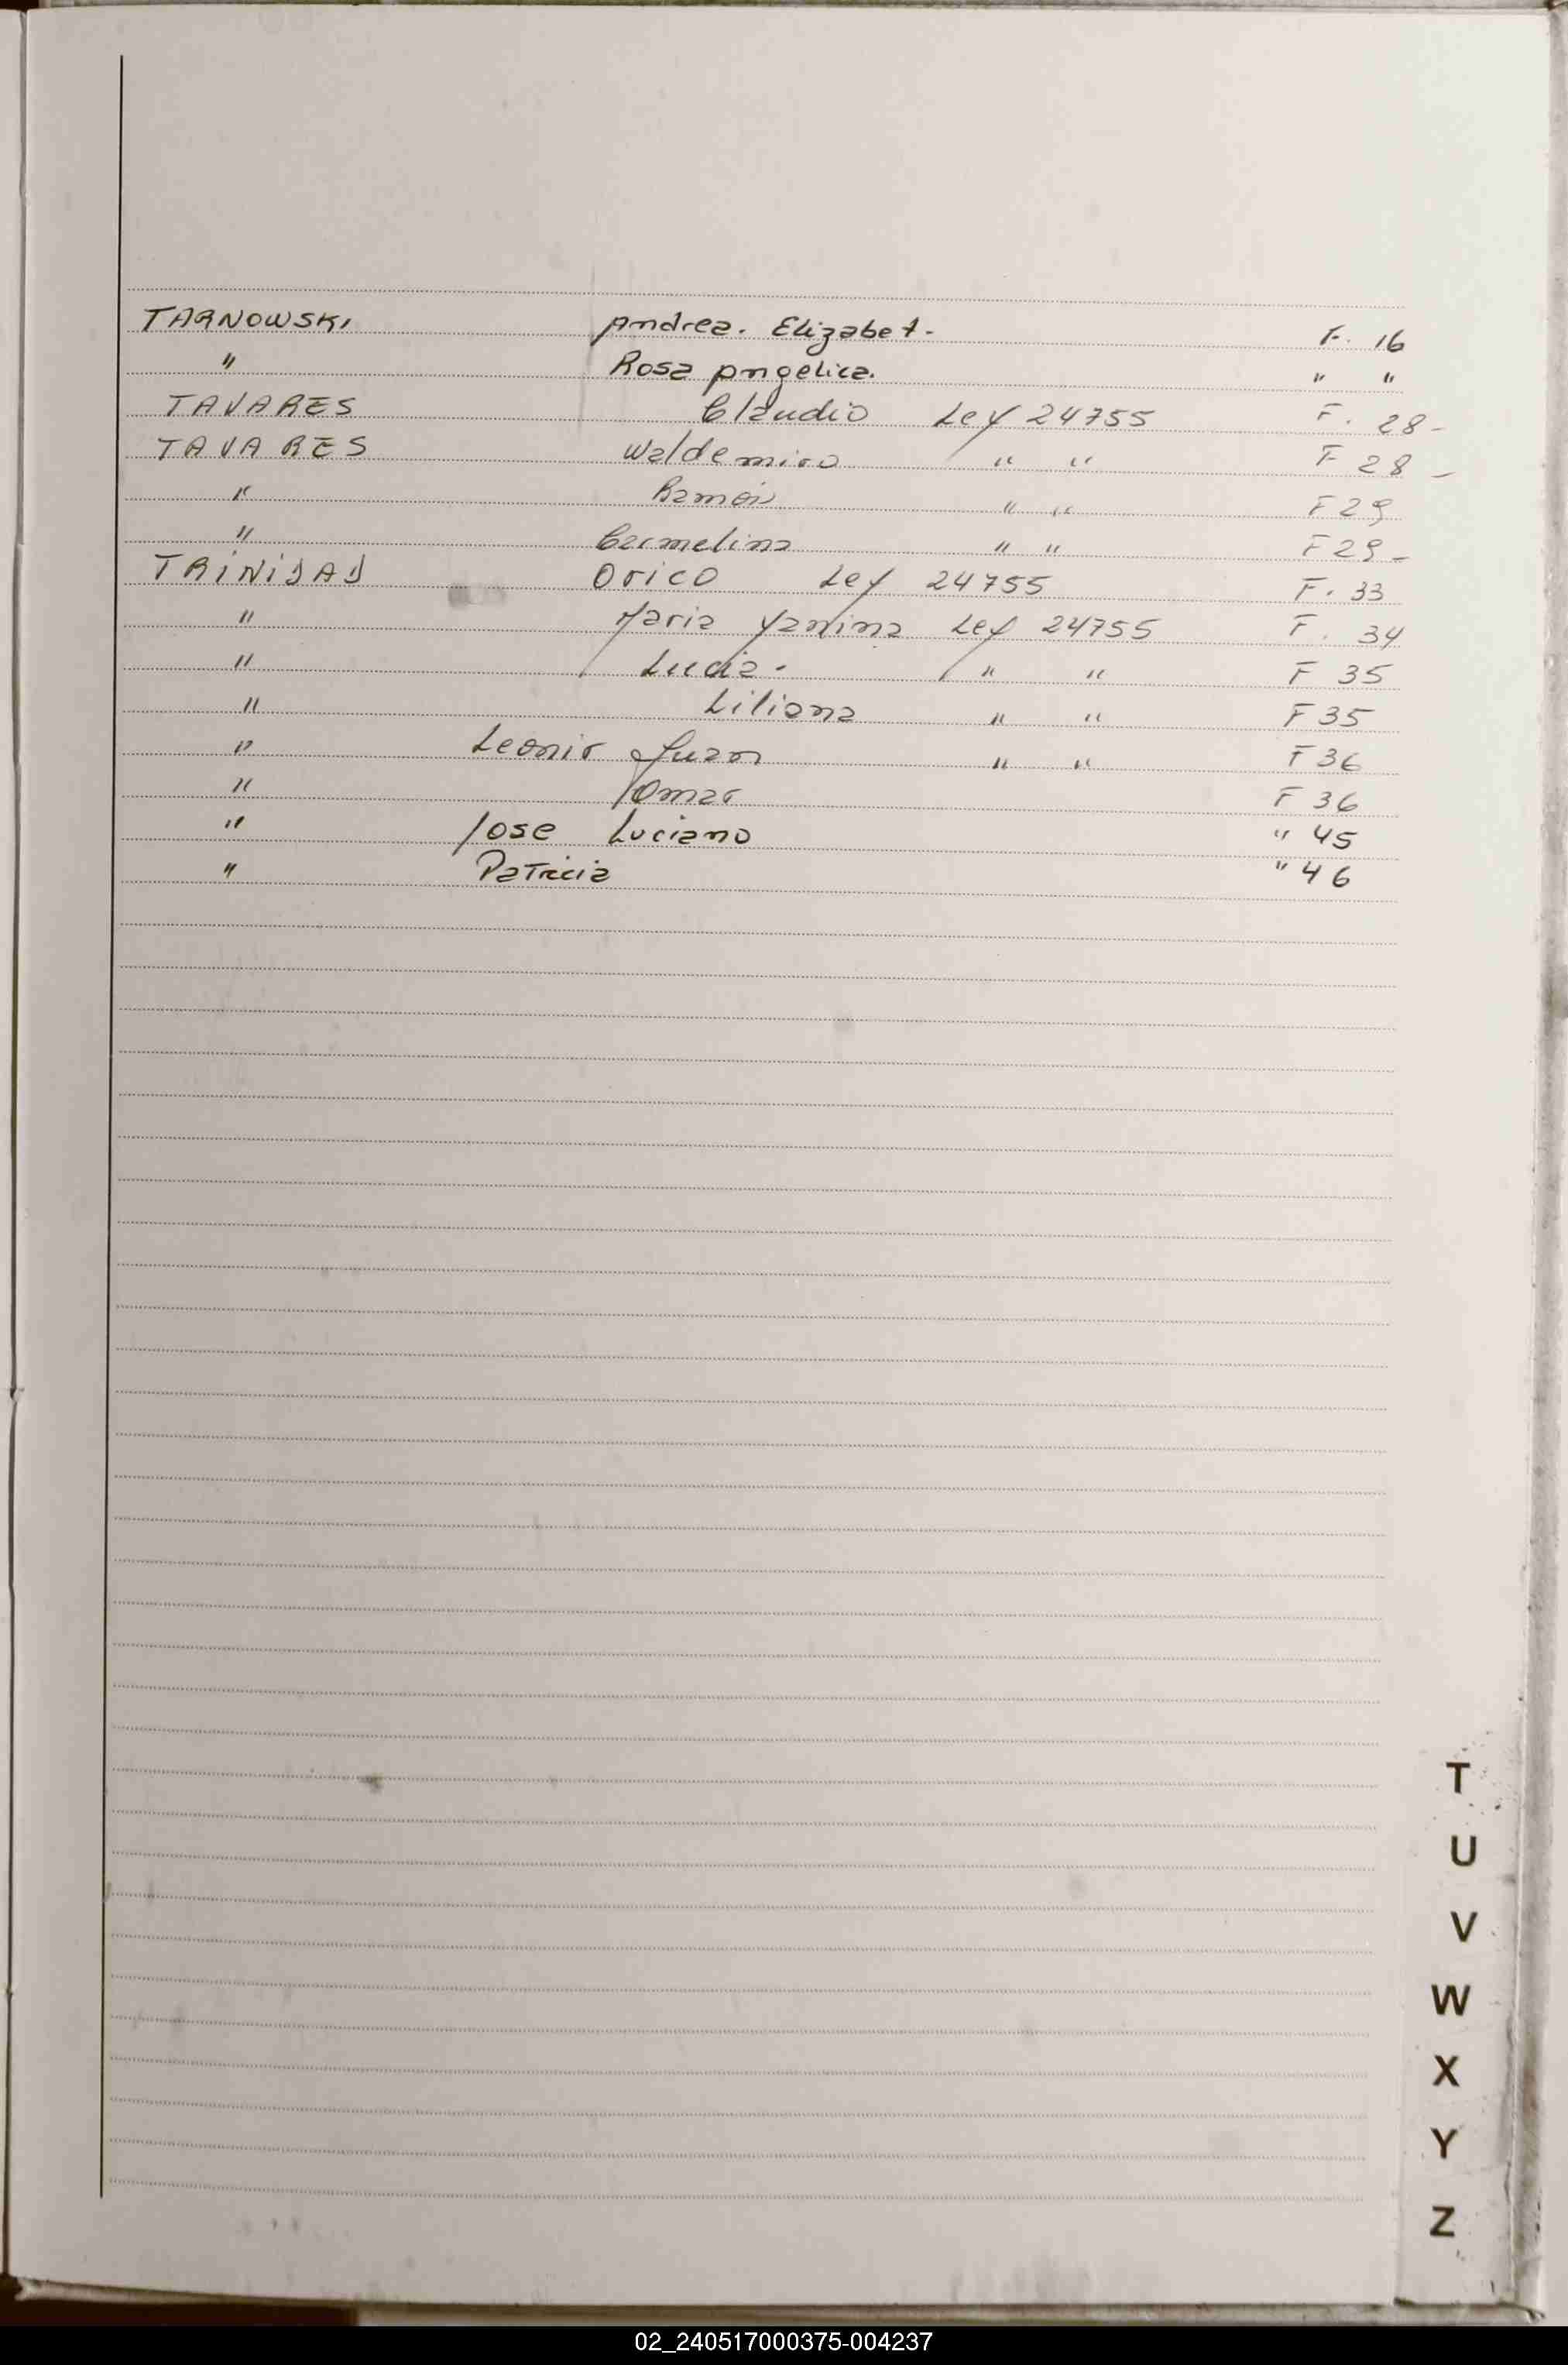 TARNOWSKI Andrea. Elizabet. F. 16
" Rosa Angelica. " "
TAVARES Claudio Ley 24755 F. 28-
TAVARES Waldemiro " " F 28-
" Ramón " " F 29
" Carmelina " " F 29-
TRINIDAD Orico Ley 24755 F. 33
" Maria Yanina Ley 24755 F. 34
" Lucia. " " F 35
" Liliana " " F 35
" Leonir Juan " " F 36
" Omar F 36
" Jose Luciano " 45
" Patricia " 46
T
U
V
W
X
Y
Z
02_240517000375-004237